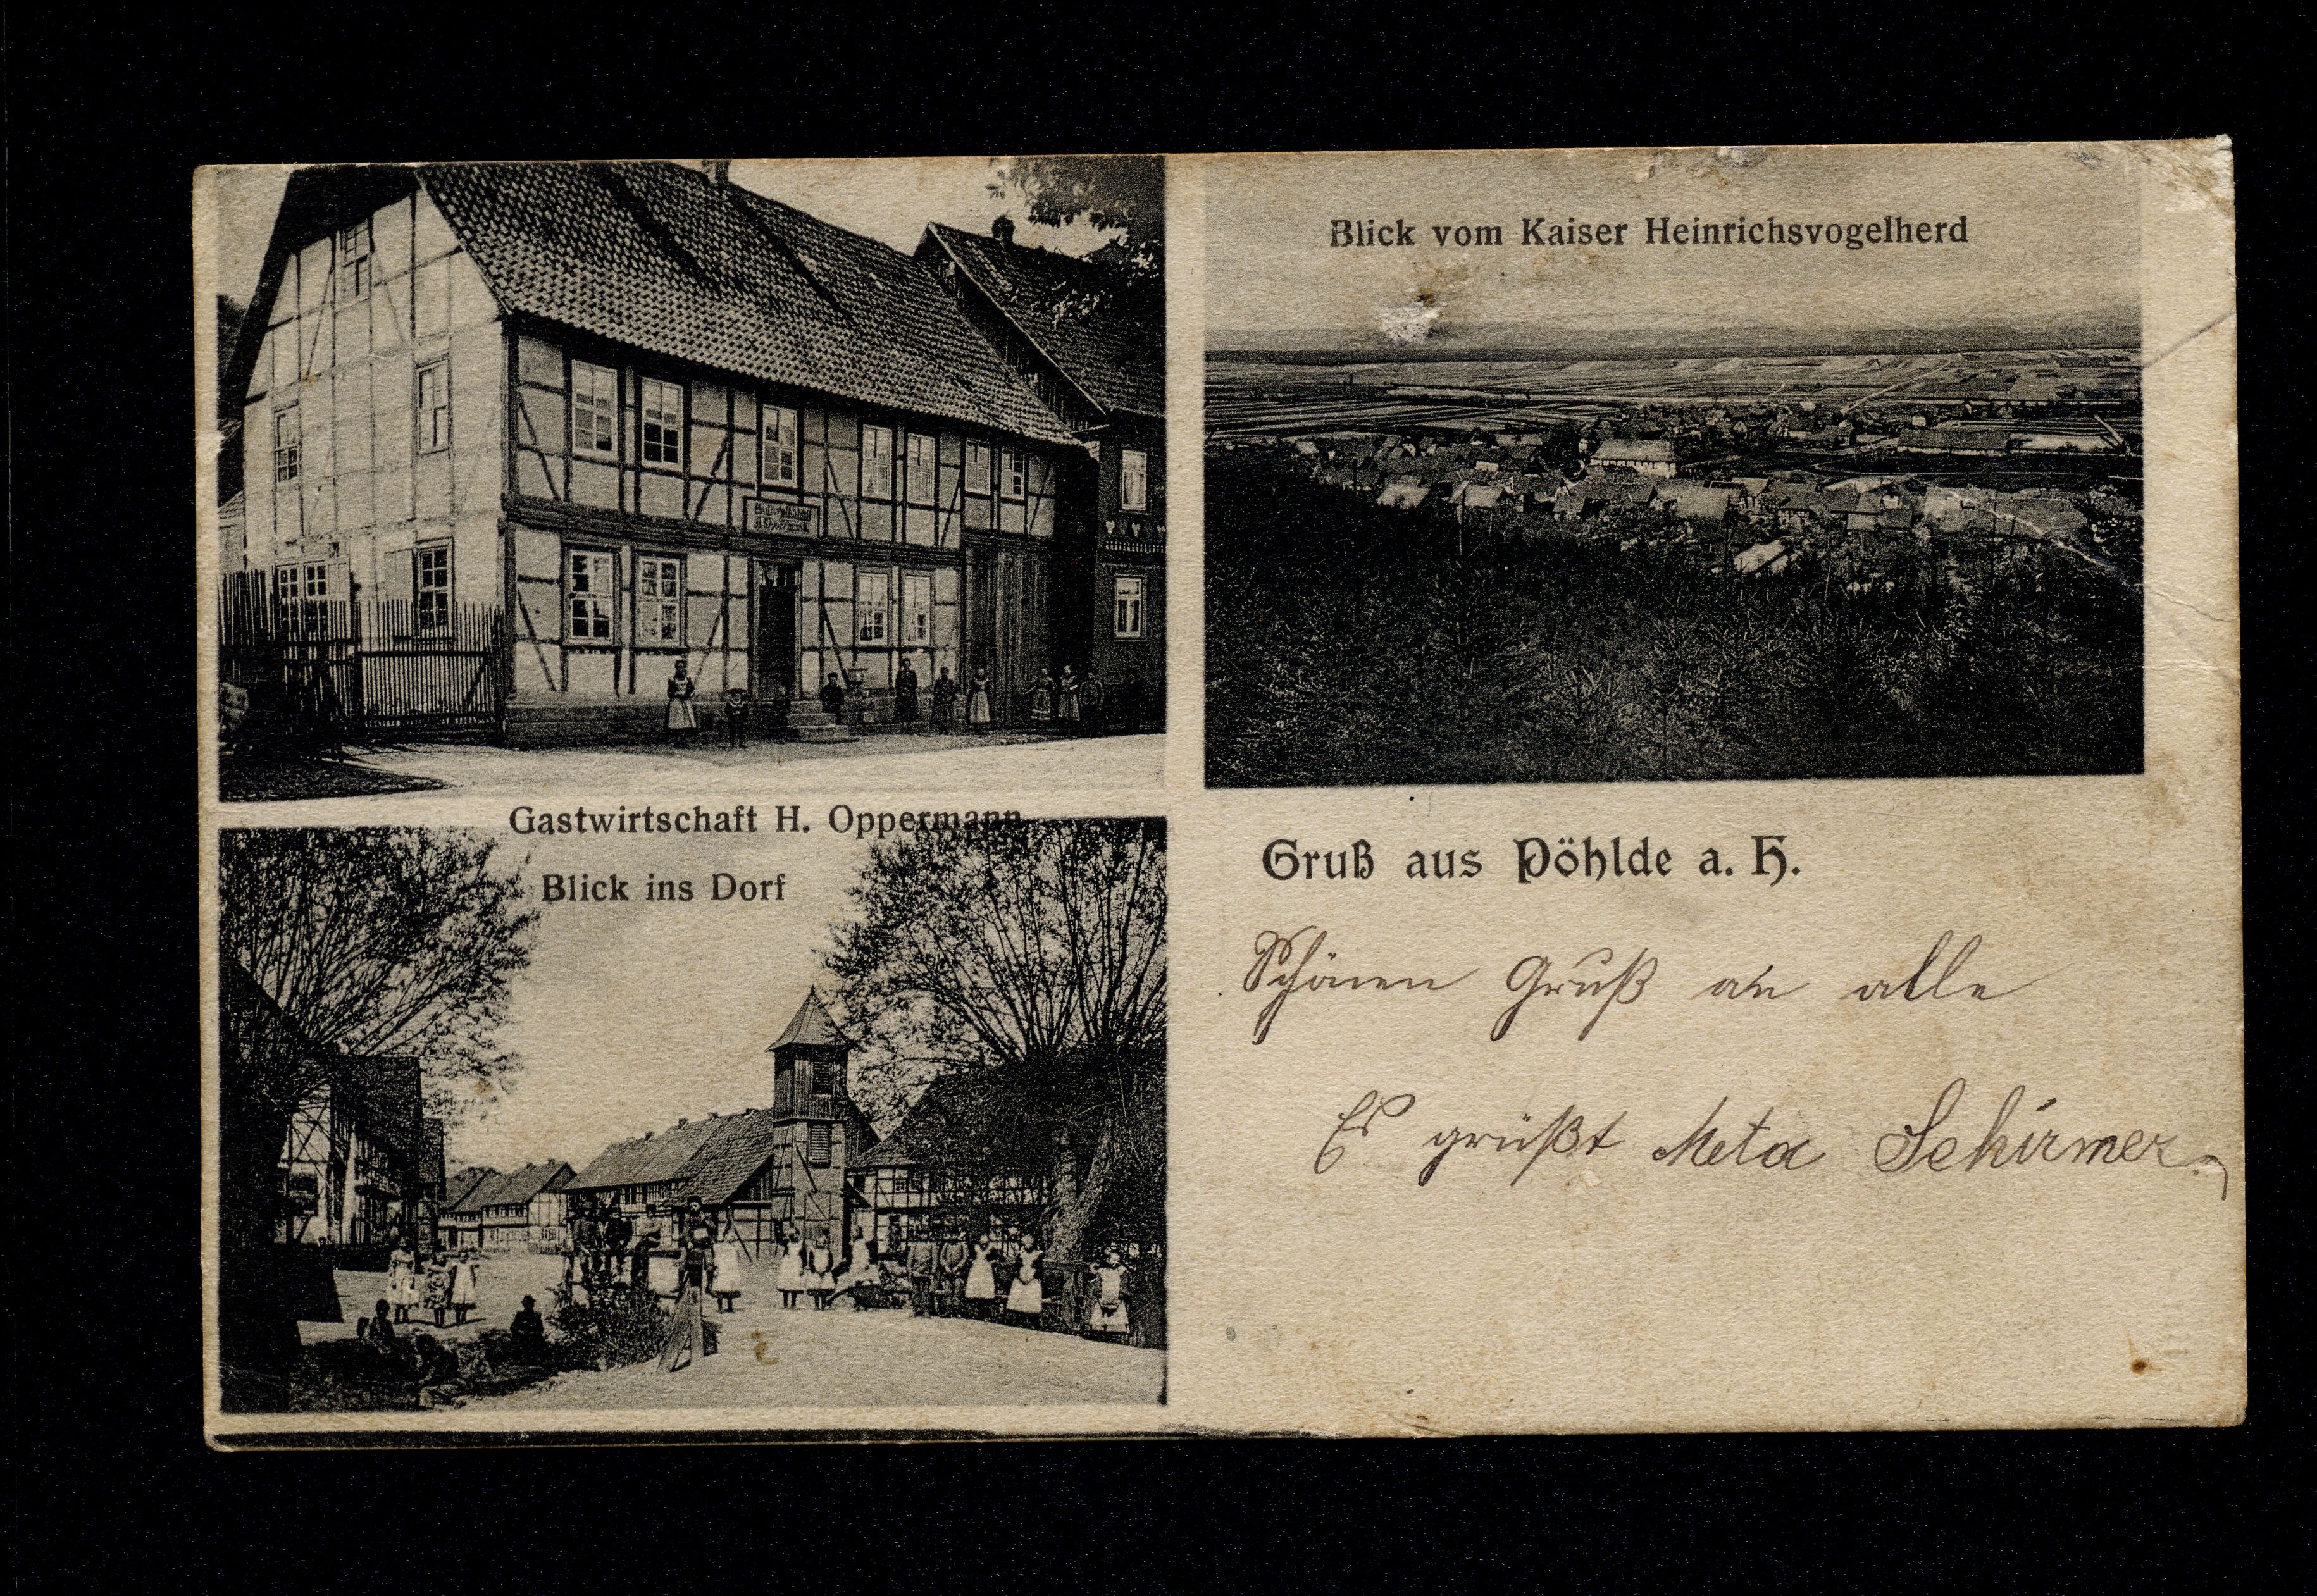 Gastwirtschaft
H. Oppermann
Gastwirtschaft H. Oppermann
Blick vom Kaiser Heinrichsvogelherd
Blick ins Dorf
Gruß aus Pöhlde a. H.
Schönen Gruß an alle
Es grüßt Meta Schirmer.